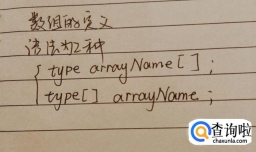 数组的定义
语法为2种
{ type arrayName[];
type[] arrayName;
查询啦
chaxunla.com